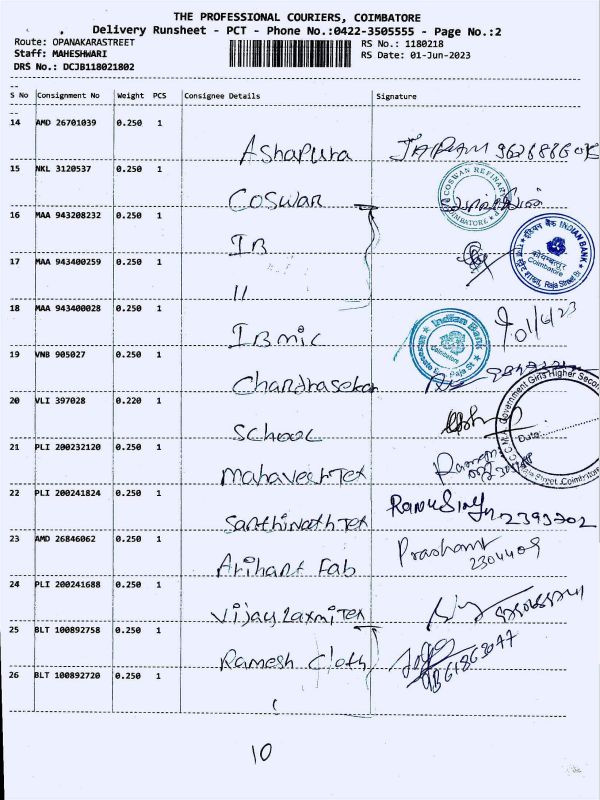 THE PROFESSIONAL COURIERS, COIMBATORE
Delivery Runsheet - PCT - Phone No.:0422-3505555 - Page No.:2
Route: OPANAKARASTREET RS No.: 1180218
Staff: MAHESHWARI RS Date: 01-Jun-2023
DRS No.: DCJB118021802
S No Consignment No Weight PCS Consignee Details Signature
14 AMD 26701039 0.250 1
Ashapura
15 NKL 3120537 0.250 1
Coswan COSWAN REFINARY COIMBATORE
16 MAA 943208232 0.250 1
IB
इंडियन बैंक INDIAN BANK
कोयम्बत्तूर
Coimbatore
Raja Street
17 MAA 943400259 0.250 1
11
18 MAA 943400028 0.250 1
IB mic Indian Bank Coimbatore Raja St 01/6/23
19 VNB 905027 0.250 1
Chandrasekar
20 VLI 397028 0.220 1
School
Government Girls Higher Secon
Date:
Raja Street, Coimbatore
21 PLI 200232120 0.250 1
MahaveehTex
22 PLI 200241824 0.250 1
SanthinathTex
23 AMD 26846062 0.250 1
Arihant Fab Prashant
2304409
24 PLI 200241688 0.250 1
Vijay LaxmiTex
25 BLT 100892758 0.250 1
Ramesh Cloth
26 BLT 100892720 0.250 1
10